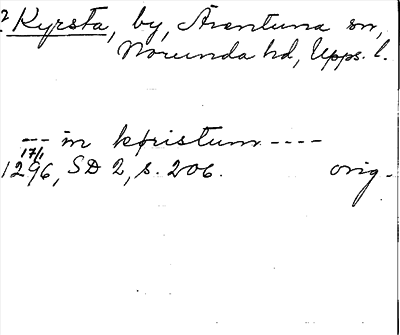 ? Kyrsta, by, Ärentuna sn,
Norunda hd, Upps. l.
-- in køristum ----
17/1
1296, SD 2, s. 206. orig.